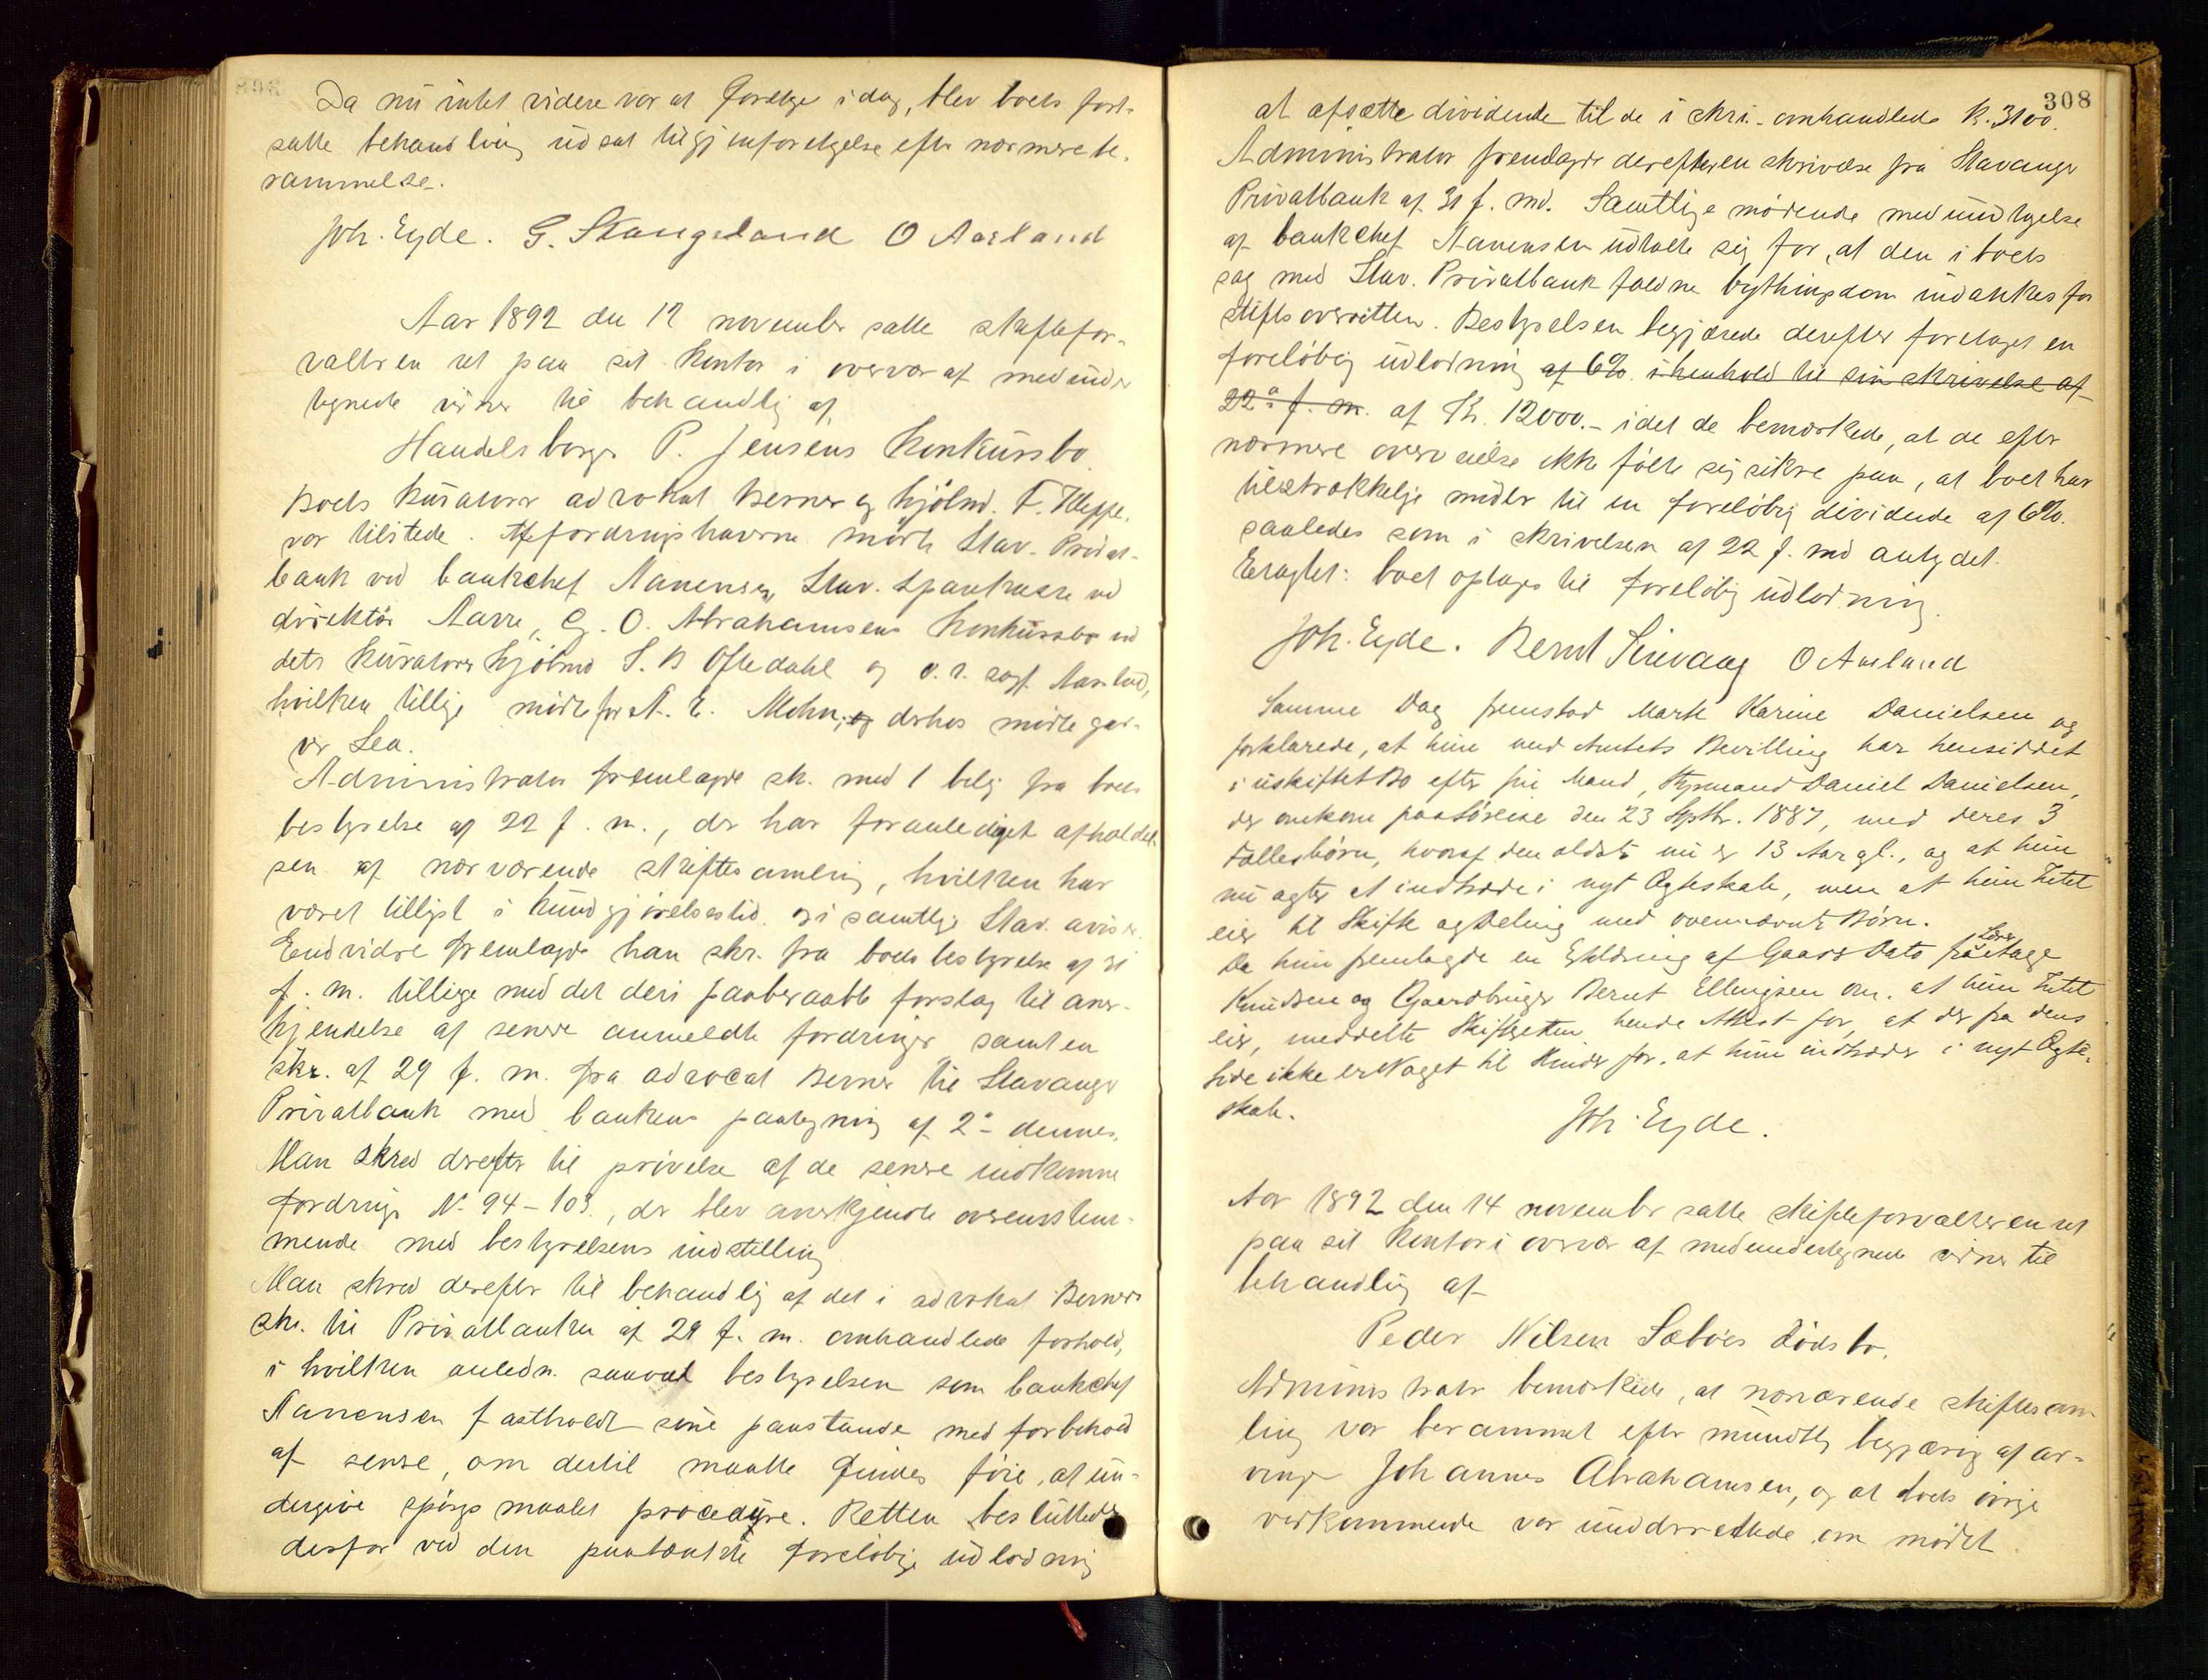 Da nu intet videre var at foretage idag, blev boets fort-
satte behandling udsat til gjenforetagelse efter nærmere be-
rammelse.
Joh. Eyde. G. Stangeland O Aarland
Aar 1892 den 12 november satte skiftefor-
valteren ret paa sit kontor i overvær af medunder
tegnede vidner til behandlig af
Handelsborger P. Jensens Konkursbo
Boets kuratorer advokat Berner og kjöbmd. F. Kleppe.
var tilstede. Af fordringshaverne mödte Stav. Privat-
bank ved bankchef Nanensen, Stav. Sparekasse ved
direktör Aarre, G. O. Abrahamsens konkursbo ved
dets kuratorer kjöbmd S. B Oftedahl og o. r. sagf. Aarland,
hvilken tillige mödte for A. E. Mohn, og derhos mödte gar-
ver Lea.
Administrator fremlagde sk. med 1 bilag fra boets
bestyrelse af 22 f. m., der har foranlediget afholdel-
sen af nærværende skiftesamling, hvilken har
været tillyst i kundgjörelsestid. og i samtlige Stav. aviser.
Endvidre fremlagde han skr. fra boets bestyrelse af 31
f. m. tillige med det deri paaberaabte forslag til aner-
kjendelse af senere anmeldte fordringer samt en
skr. af 29 f. m. fra advocat Berner til Stavanger
Privatbank med bankens paategning af 2den dennes.
Man skred derefter til prövelse af de senere indkomne
fordringer No 94-103., der blev anerkjendte overensstem-
mende med bestyrelsens indstilling
Man skred derefter til behandlig af det i advokat Berners
skr. til Privatbanken af 29 f. m. omhandlede forhold,
i hvilken anledn. saavel bestyrelsen som bankchef
Nanensen fastholdt sine paastande med forbehold
af senere, om dertil maatte findes föie, at un-
dergive spörgsmaalet procedyre. Retten besluttede
derfor ved den paatænkte foreløbige udlodning
308
at afsætte dividende til de i skri.- omhandlede K. 3100.
Administrator fremlagde derefter en skrivelse fra Stavanger
Privatbank af 31 f. md. Samtlige mödende med undtagelse
af bankchef Nanensen udtalte sig for, at den i boets
sag med Stav. Privatbank faldne bythingsdom indankes for
stiftsoverretten. Bestyrelsen begjærede derefter foretaget en
foreløbig udlodning af 6%. i henhold til sin skrivelse af
22de f. m. af Kr. 12000.- idet de bemærkede, at de efter
nærmere overveielse ikke fölte sig sikre paa, at boet har
tilstrækkelige midler til en foreløbig dividende af 6%.
saaledes som i skrivelsen af 22 f. md antydet.
Eragtet: boet optages til foreløbig udlodning.
Joh. Eyde. Bernt Sinvaag O Aarland
Samme Dag fremstod Marte Karine Danielsen og
forklarede, at hun med Amtets Bevilling har hensiddet
i uskiftet Bo efter sin Mand, Styrmand Daniel Danielsen,
der omkom paa Söreise den 23 Septbr. 1887, med deres 3
Fællesbörn, hvoraf den ældste nu er 13 Aar gl., og at hun
nu agter at indtræde i nyt Ægteskab, men at hun Intet
eier til Skifte og Deling med ovennævnte Börn.
Da hun fremlagde en Erklæring af Gaars Dato fra Lærer Tage
Knudsen og Gaardbruger Bernt Ellingsen om. at hun Intet
eier, meddelte Skifteretten hende Attest for, at der fra dens
Side ikke er Noget til Hinder for. at hun indtræder i nyt Ægte-
skab.
Joh. Eyde.
Aar 1892 den 14 november satte skifteforvalteren ret
paa sit kontor i overvær af medundertegnede vidner til
behandlig af
Peder Nilsen Sæböes dödsbo.
Administrator bemærkede, at nærværende skiftesam-
ling var berammet efter mundtlig begjæring af ar-
vinge Johannes Abrahamsen, og at boets övrige
vedkommende var underrettede om mödet